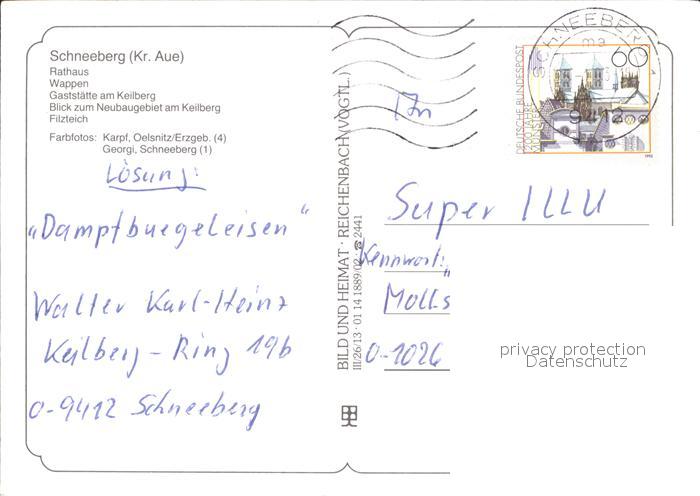 Schneeberg (Kr. Aue)
Rathaus
Wappen
Gaststätte am Keilberg
Blick zum Neubaugebiet am Keilberg
Filzteich
Farbfotos: Karpf, Oelsnitz/Erzgeb. (4)
Georgi, Schneeberg (1)
Lösung:
„Dampfbuegeleisen“
Walter Karl-Heinz
Keilberg-Ring 19b
O-9412 Schneeberg
BILD UND HEIMAT · REICHENBACH (VOGTL.)
III/26/13 · 01 14 1889/02 ☎ 2441
SCHNEEBERG
9412
DEUTSCHE BUNDESPOST
1200 JAHRE
MÜNSTER
60
1993
Super ILLU
Kennwort: "
Molls
O-1026
privacy protection
Datenschutz